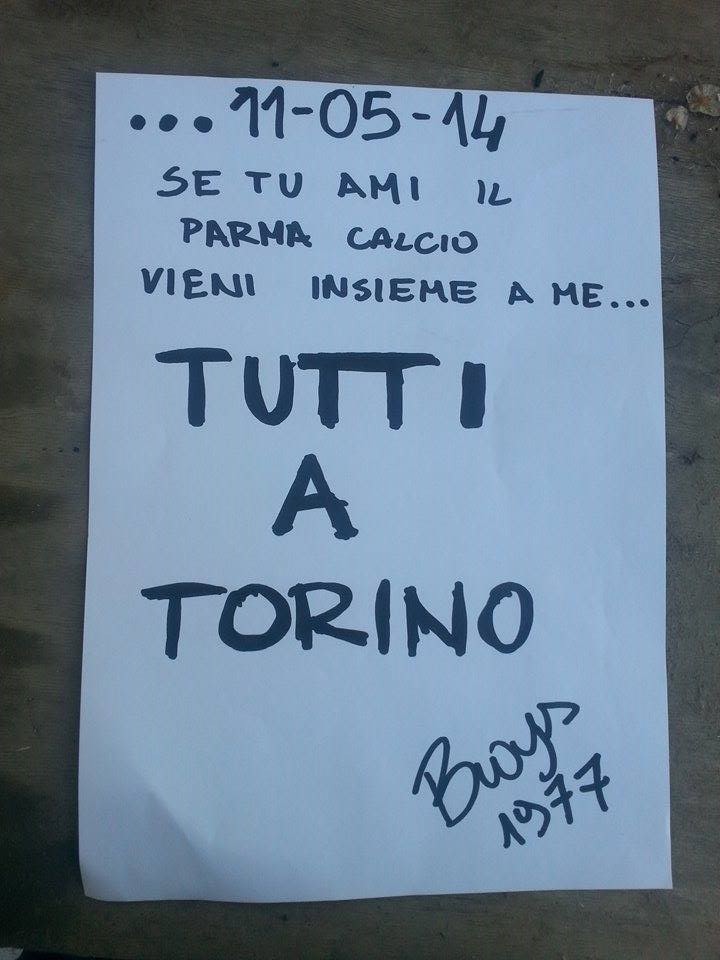 ...11-05-14
SE TU AMI IL
PARMA CALCIO
VIENI INSIEME A ME...
TUTTI
A
TORINO
Boys
1977